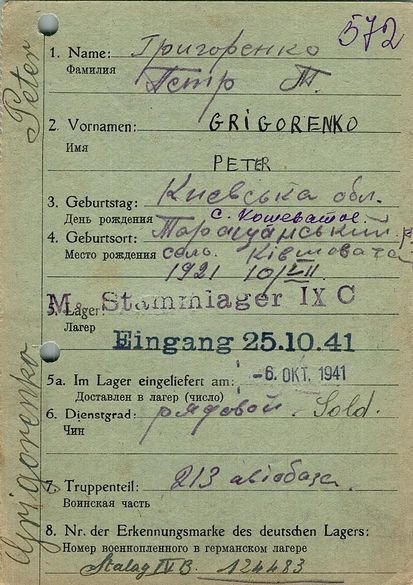 572
Peter
Grigorenko
1. Name: Григоренко
Фамилия Петр Т.
2. Vornamen: GRIGORENKO
Имя
PETER
3. Geburtstag: Киевська обл.
День рождения с. Кошеватое
4. Geburtsort: Таращанський р.
Место рождения село Ківшовата
1921 10/VII
M. Stammlager IX C
5. Lager:
Лагер
Eingang 25.10.41
5a. Im Lager eingeliefert am: -6. OKT. 1941
Доставлен в лагер (число)
6. Dienstgrad: рядовой. Sold.
Чин
7. Truppenteil: 213 авіобаза.
Воинская часть
8. Nr. der Erkennungsmarke des deutschen Lagers:
Номер военнопленного в германском лагере
Stalag IV B. 124483